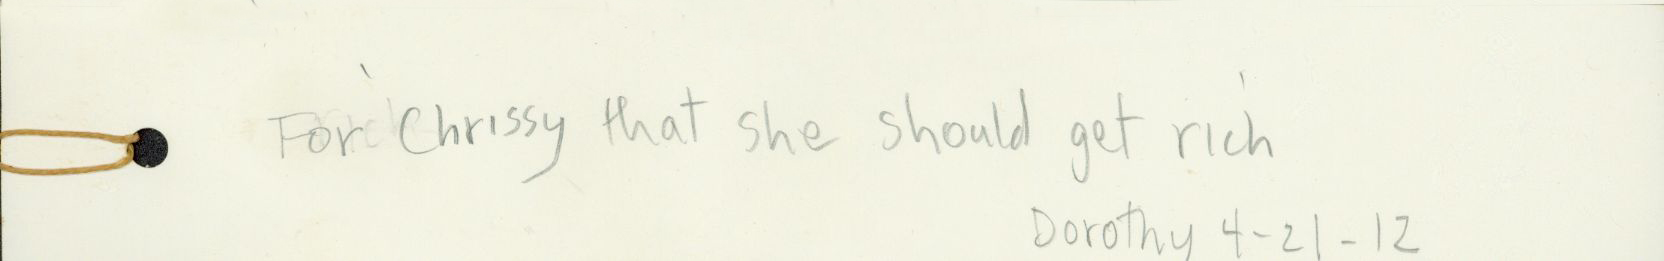 For Chrissy that she should get rich
Dorothy 4-21-12